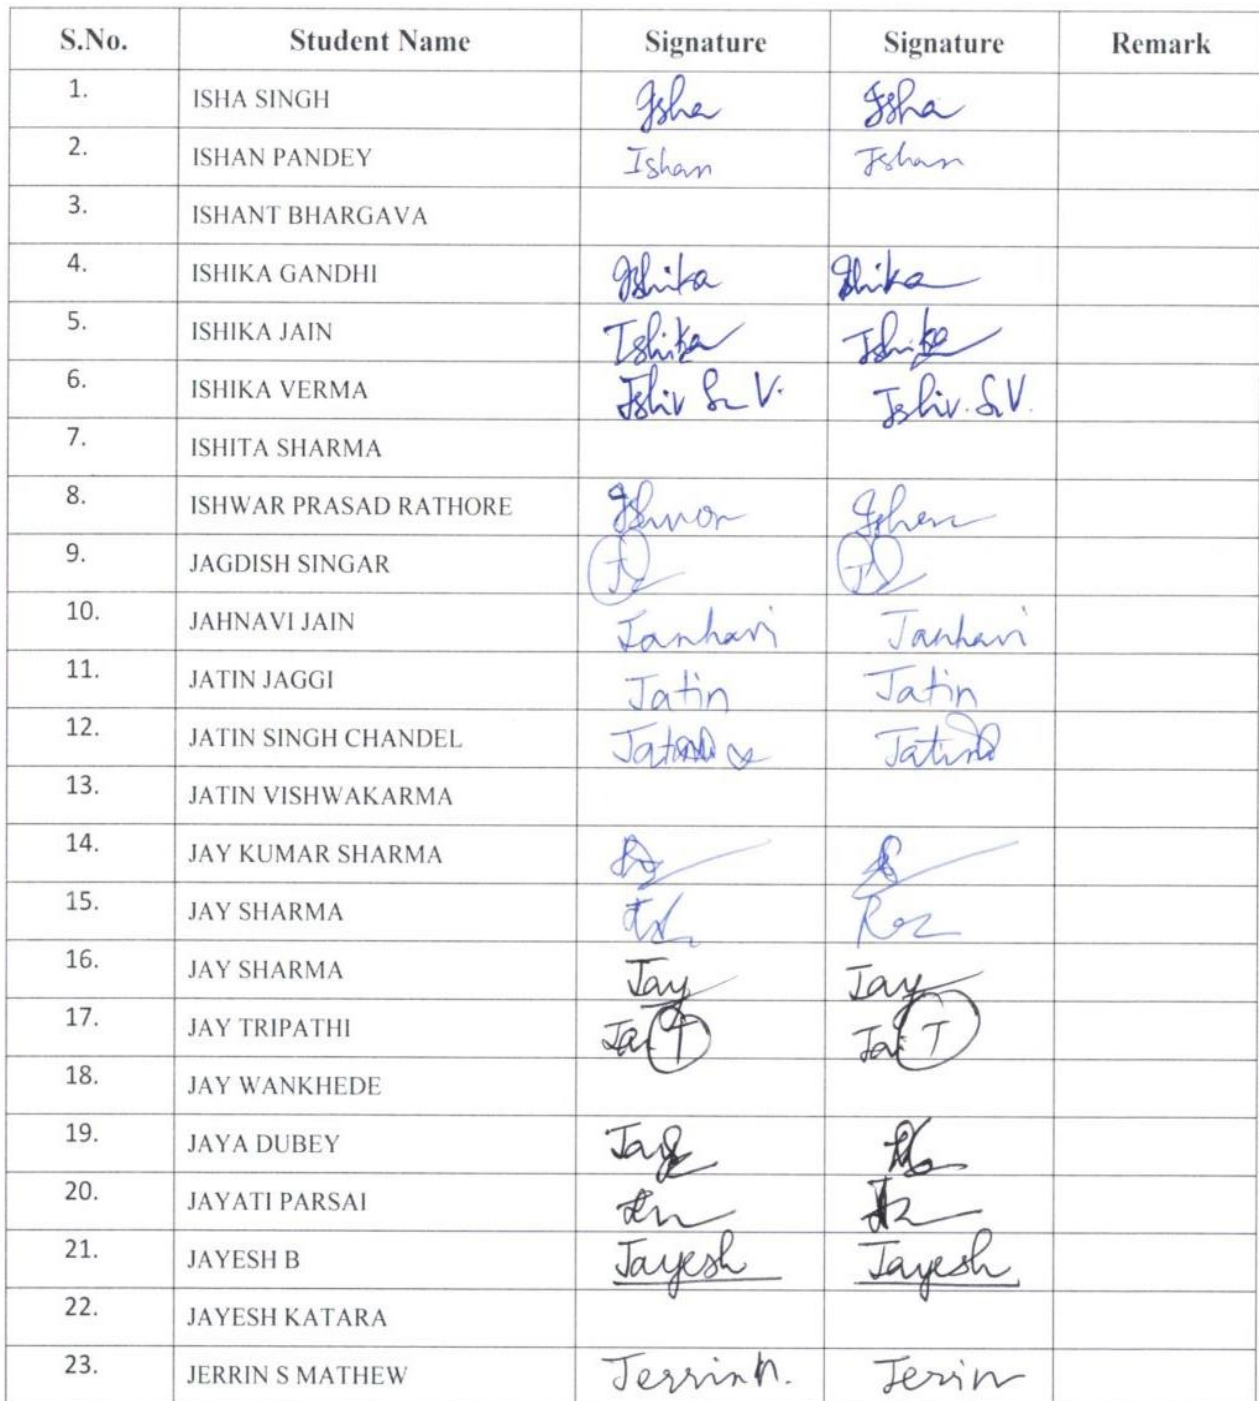 S.No. Student Name Signature Signature Remark
1. ISHA SINGH Isha Isha
2. ISHAN PANDEY Ishan Ishan
3. ISHANT BHARGAVA
4. ISHIKA GANDHI Ishika Ishika
5. ISHIKA JAIN Ishika Ishika
6. ISHIKA VERMA
7. ISHITA SHARMA
8. ISHWAR PRASAD RATHORE
9. JAGDISH SINGAR
10. JAHNAVI JAIN Janhavi Janhavi
11. JATIN JAGGI Jatin Jatin
12. JATIN SINGH CHANDEL
13. JATIN VISHWAKARMA
14. JAY KUMAR SHARMA
15. JAY SHARMA
16. JAY SHARMA Jay Jay
17. JAY TRIPATHI
18. JAY WANKHEDE
19. JAYA DUBEY
20. JAYATI PARSAI
21. JAYESH B Jayesh Jayesh
22. JAYESH KATARA
23. JERRIN S MATHEW Jerrin Jerin